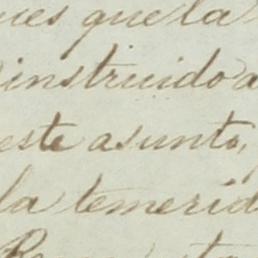 que la
instruido a
este asunto,
la temerid